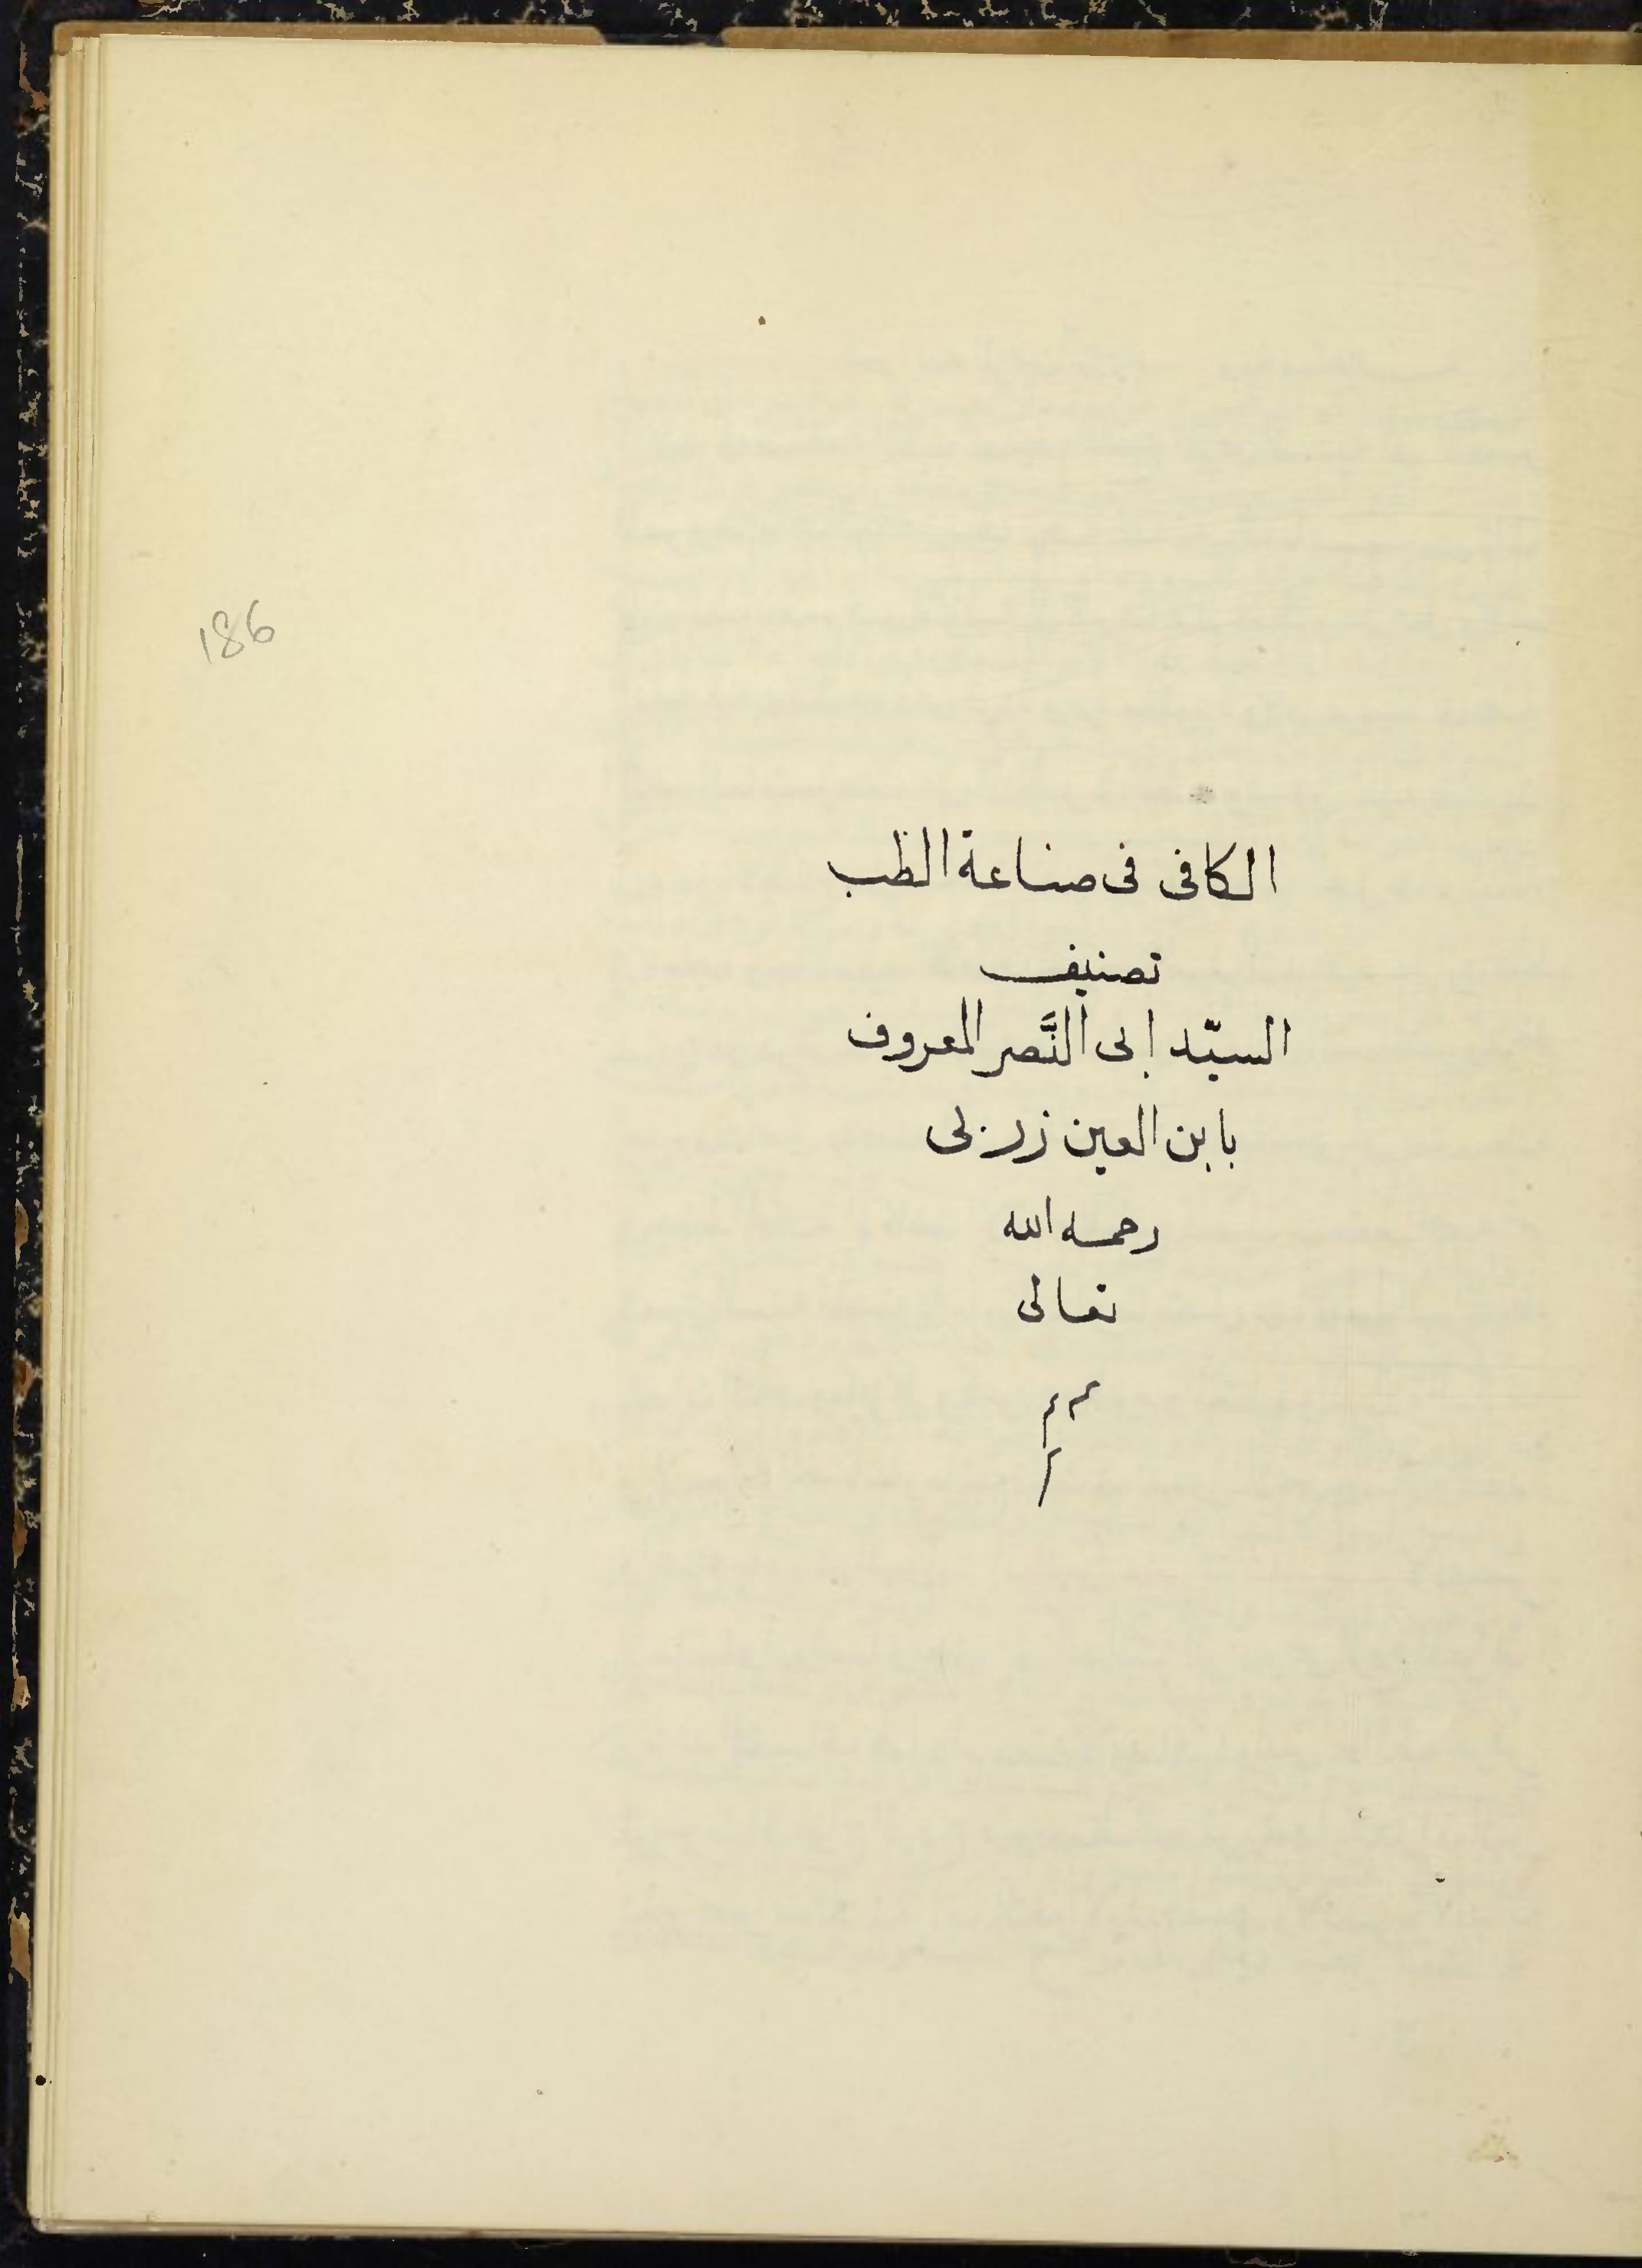 186
الكافى فى صناعة الطب
تصنيف
السيّد ابى النَّصر المعروف
بابن العين زربى
رحمه الله
تعالى
م م
م